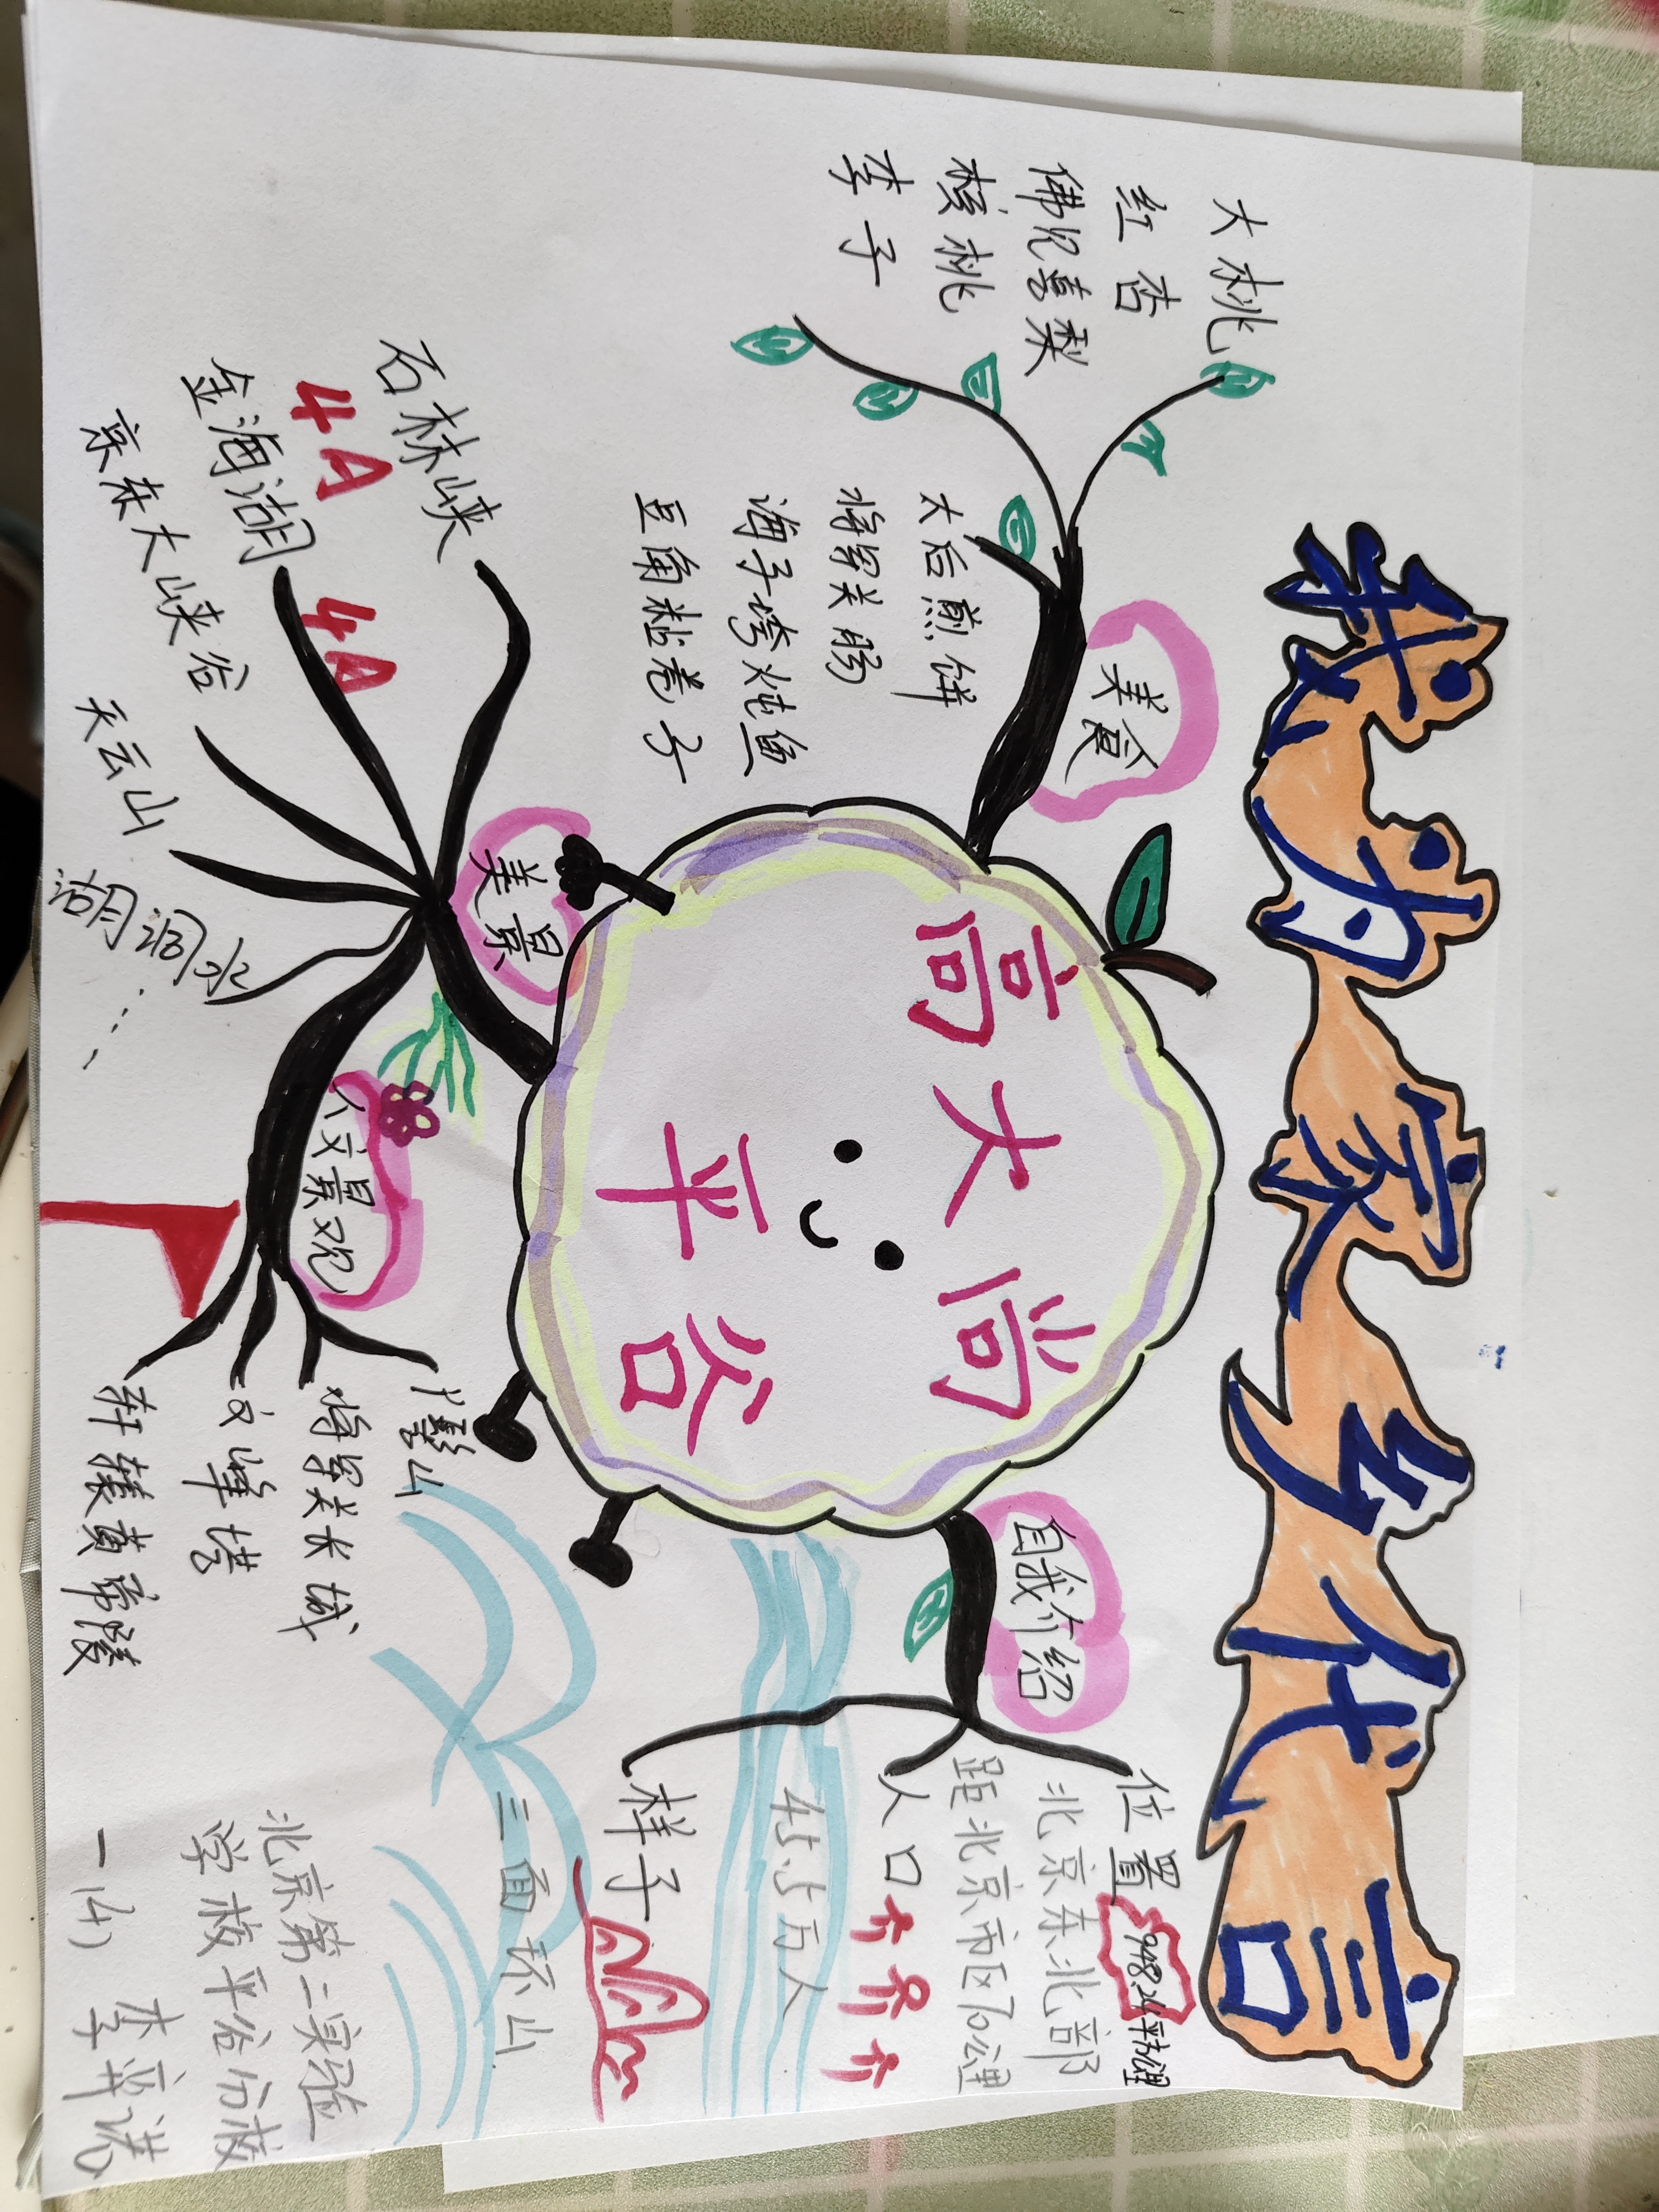 我为家乡代言
高大尚
平谷
美食
大桃
红杏
佛见喜梨
核桃
李子
太后煎饼
将军关肠
海子垮炖鱼
豆角粘卷子
自我介绍
位置
948.24平方公里
北京东北部
距北京市区70公里
人口
45.5万人
样子
三面环山
美景
石林峡
4A
金海湖
4A
京东大峡谷
天云山
湖洞水
……
人文景观
丫髻山
将军关长城
文峰塔
轩辕黄帝陵
北京第二实验
学校平谷分校
一(4)